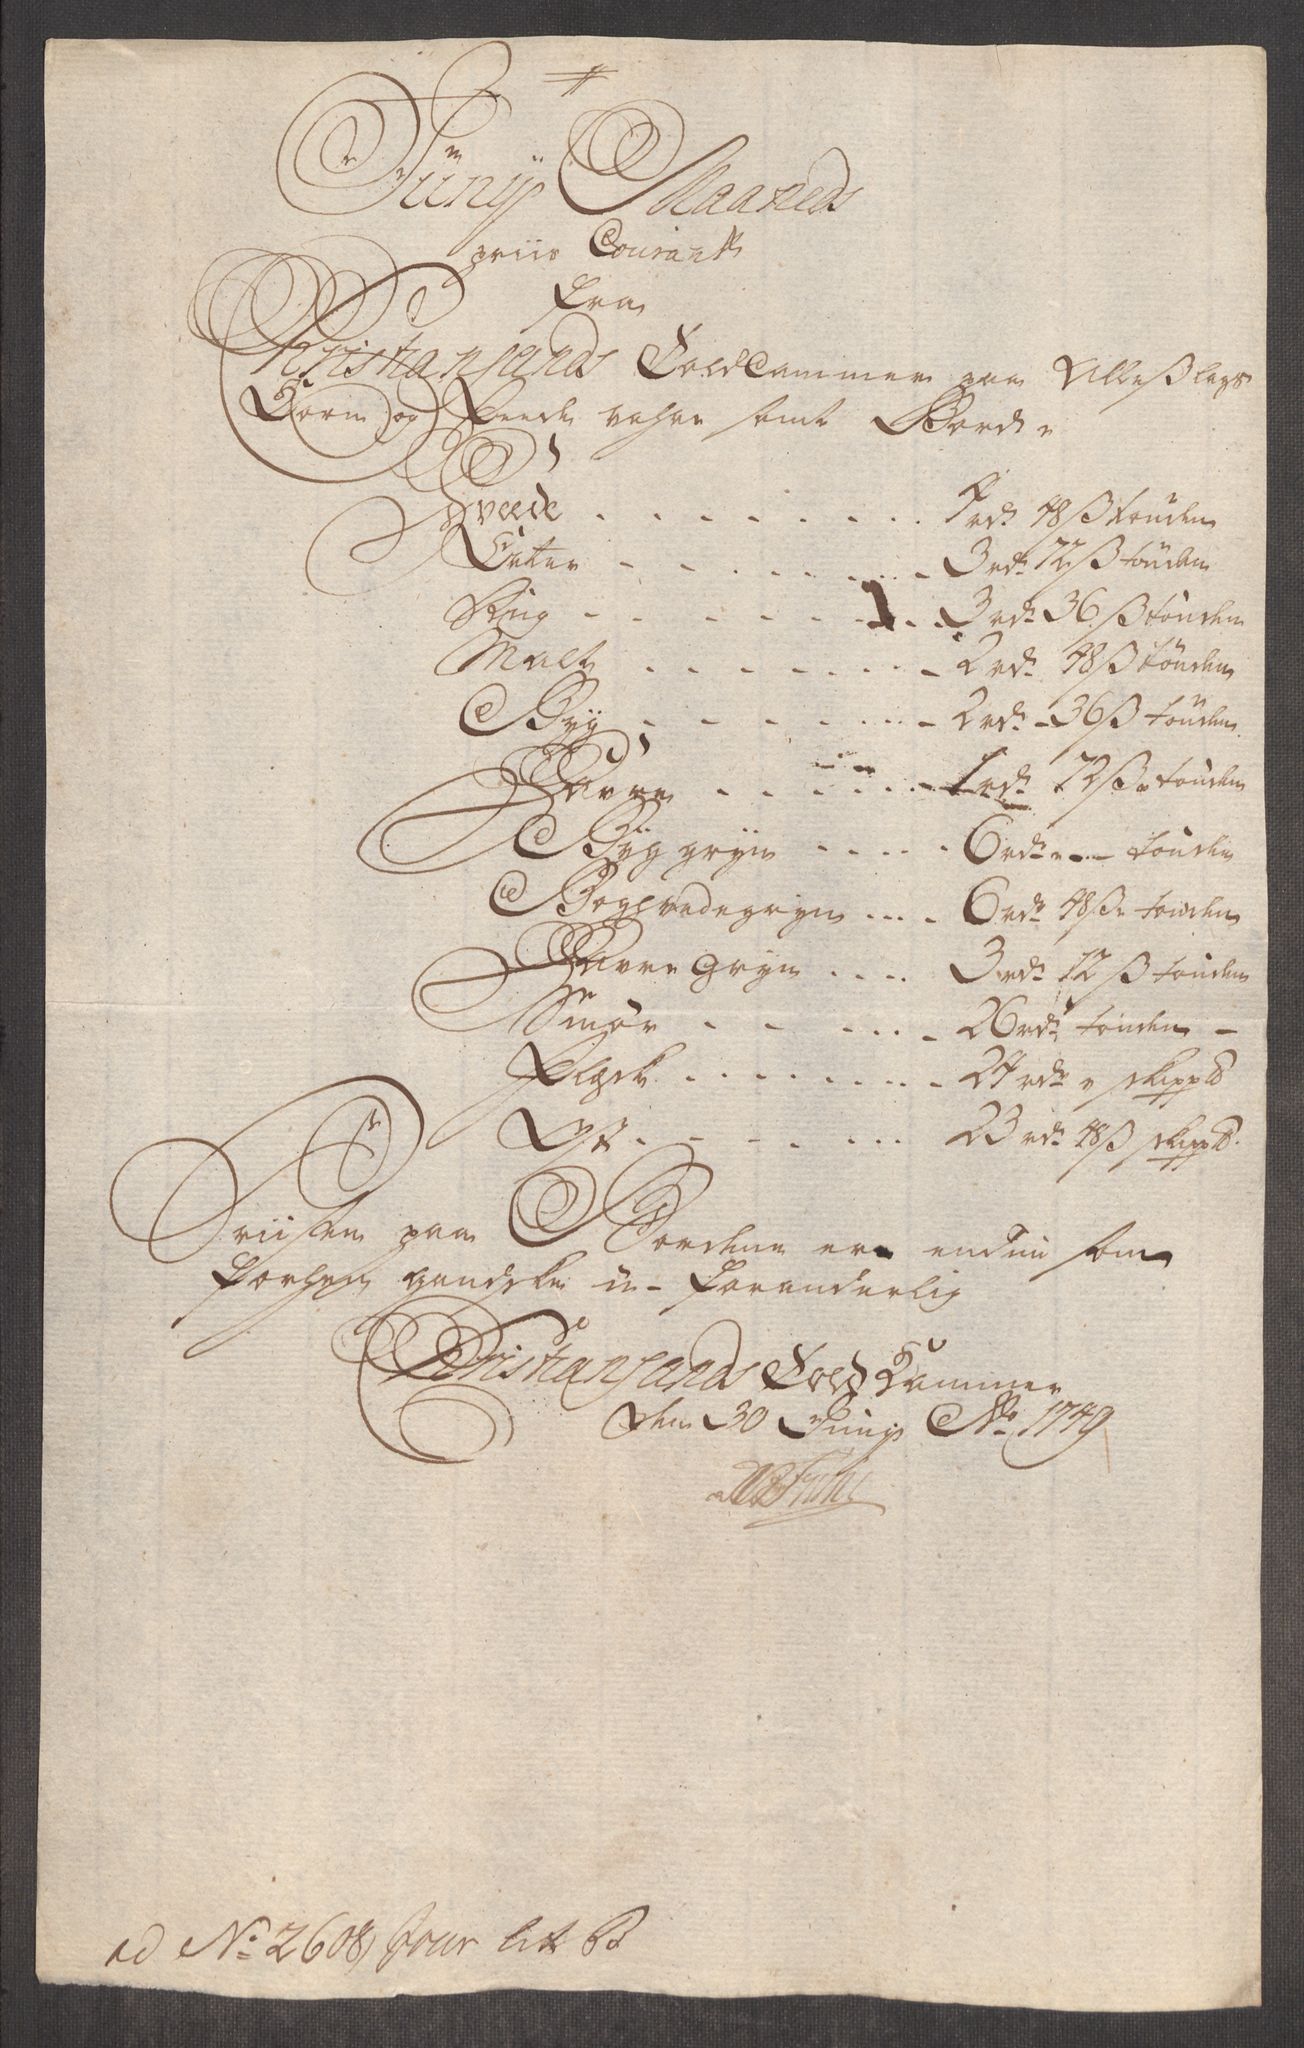 Junij Maaneds
priis Courant
fra
Christiansands Told Cammer paa Alleslags
Korn og Feede vahre samt Bord
Hveede 4 rd. 48 ß tönden
Erter 3 rd. 72 ß tönden
Rug 3 rd. 36 ß tönden
Malt 2 rd. 48 ß tönden
Byg 2 rd. 36 ß tönden
Havre 1 rd. 72 ß tönden
Byggryn 6 rd. tönden
Boghvedegryn 6 rd. 48 ß tönden
Havre Gryn 3 rd. 12 ß tönden
Smör 26 rd. tönden
Flæsk 24 rd. skippd
Ost 23 rd. 48 ß skippd.
Priisen paa Bordene er endnu som
forhen gandske u-foranderlig
Christiansands Told Kammer
den 30 Junij Ao. 1749
ad No. 2608 Jour litt B